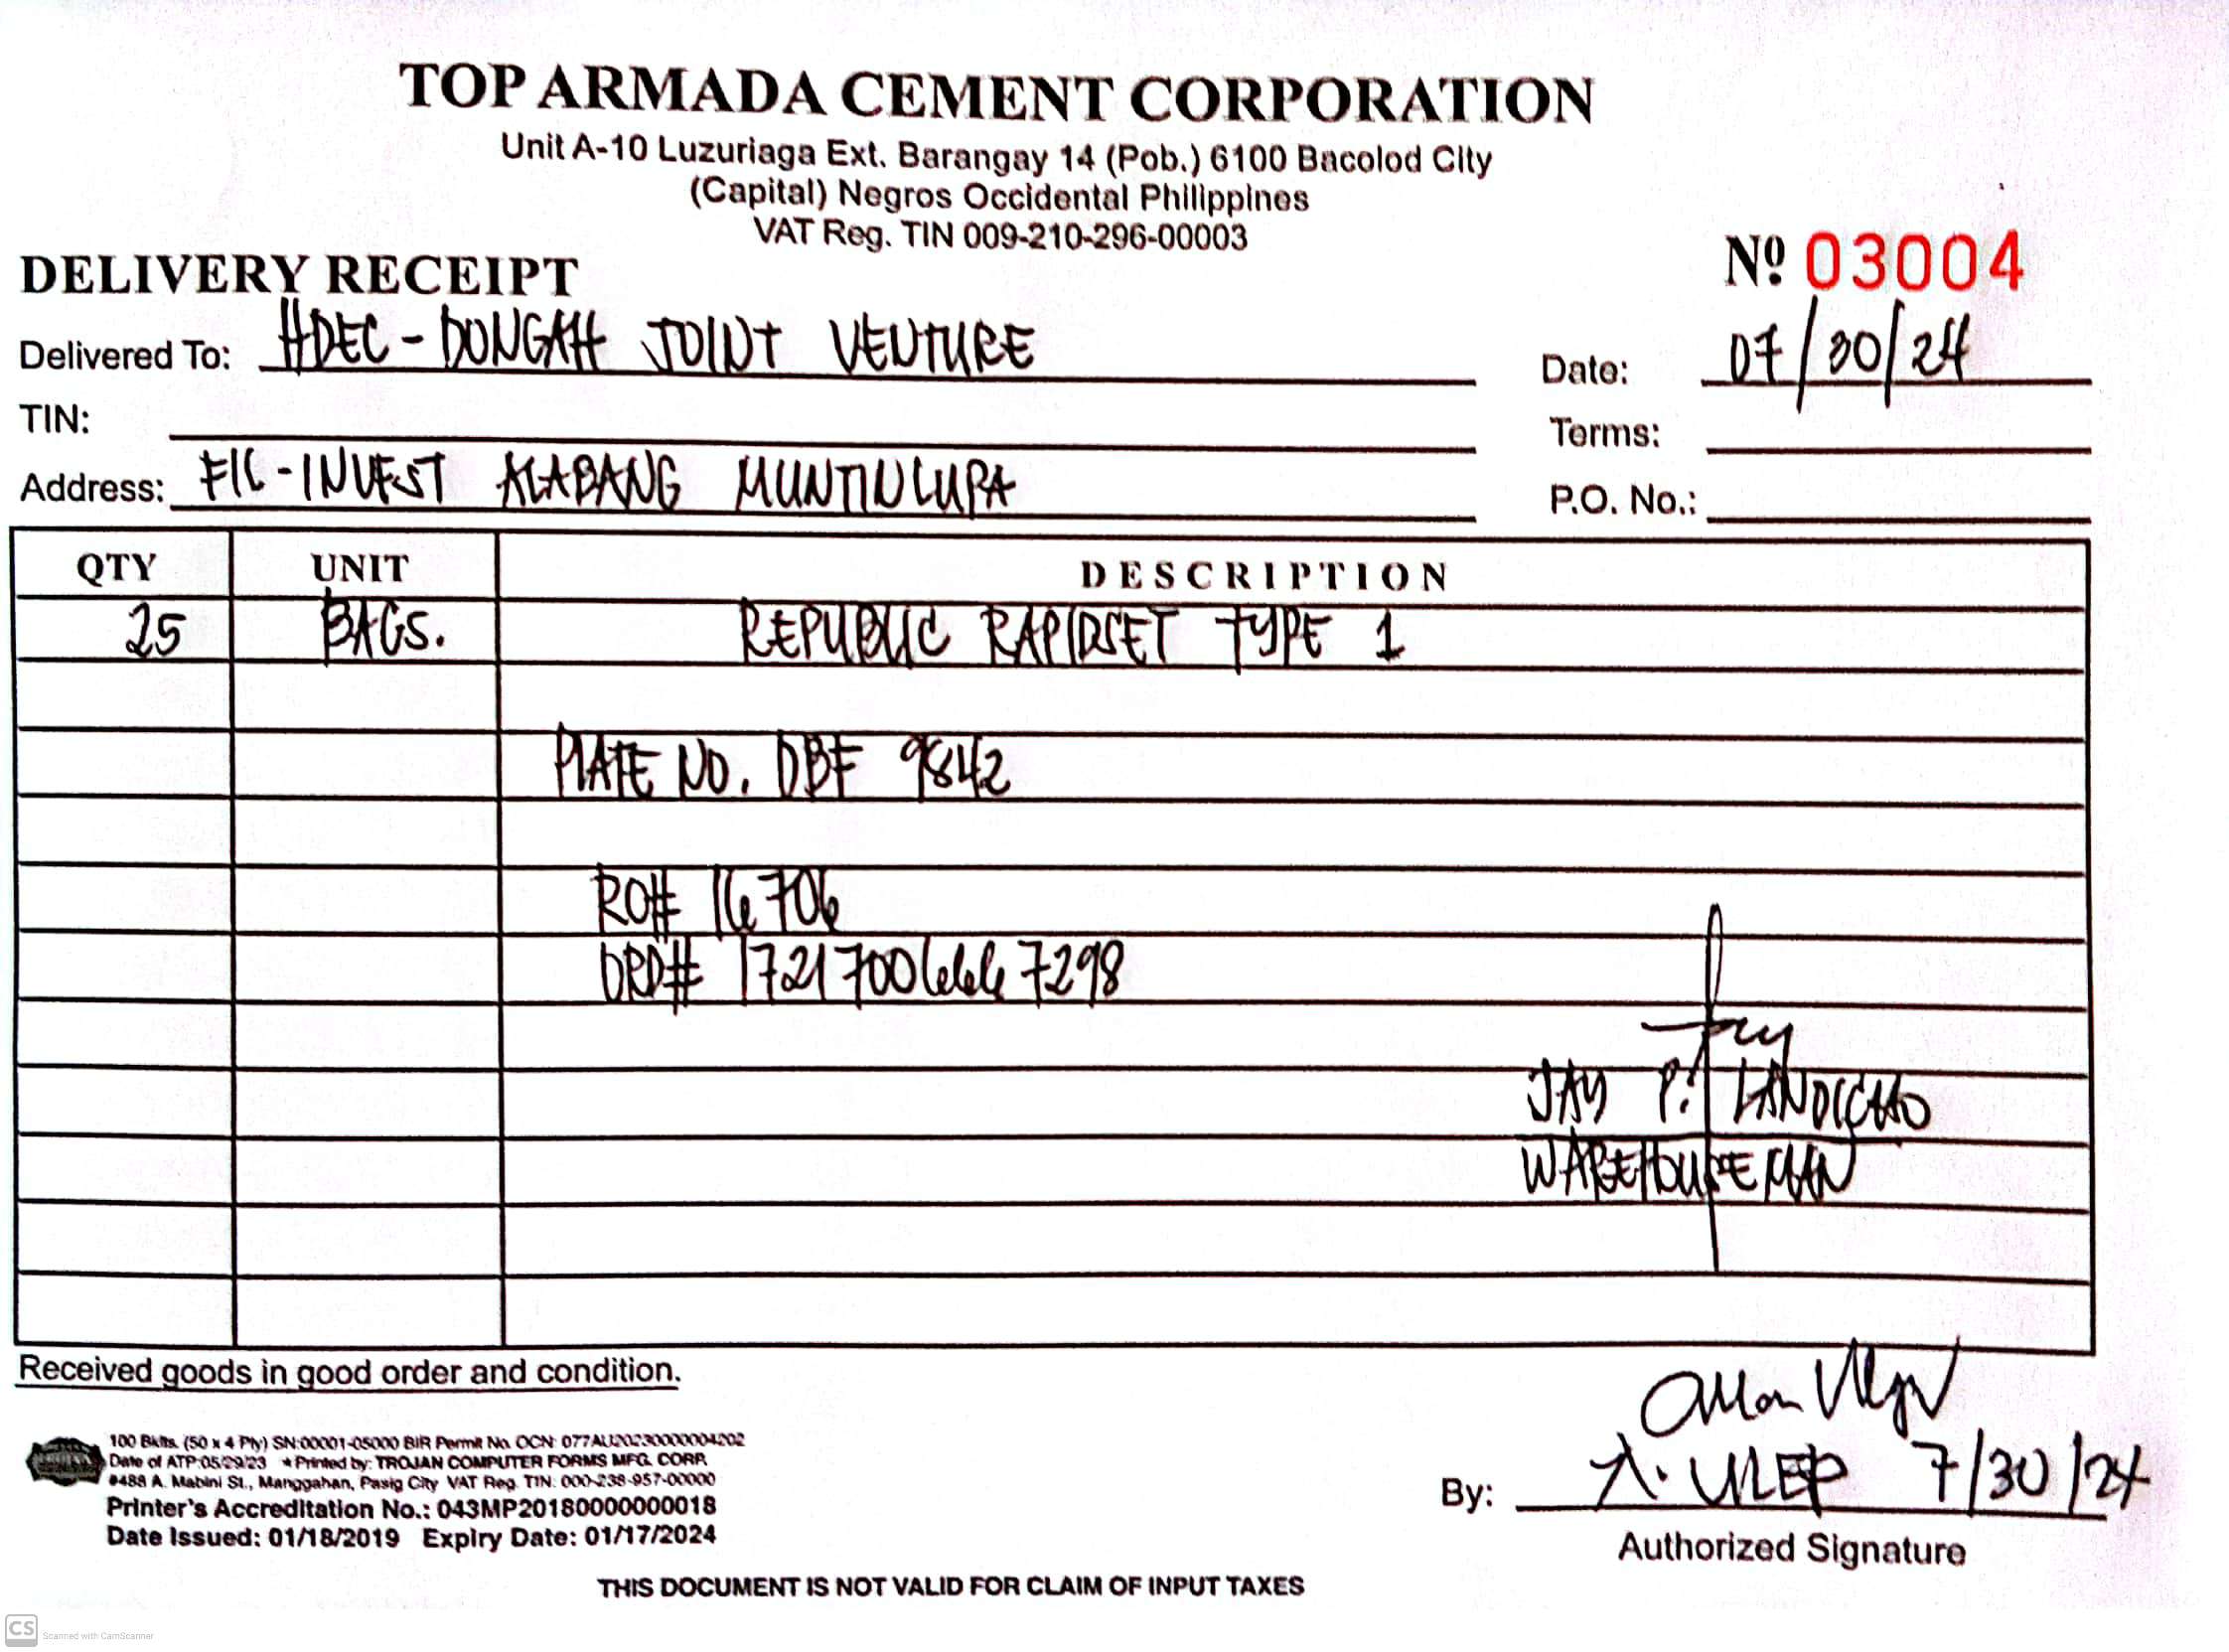 TOP ARMADA CEMENT CORPORATION
Unit A-10 Luzuriaga Ext. Barangay 14 (Pob.) 6100 Bacolod City
(Capital) Negros Occidental Philippines
VAT Reg. TIN 009-210-296-00003
DELIVERY RECEIPT
Nº 03004
Delivered To: HDEC - DONGAH JOINT VENTURE
Date: 07/30/24
TIN:
Terms:
Address: FIL-INVEST ALABANG MUNTINLUPA
P.O. No.:
QTY UNIT DESCRIPTION
25 BAGS. REPUBLIC RAPIDSET TYPE 1
PLATE NO. DBF 9842
RO# 16706
ORD# 17217006667298
JAY P. LANDICHO
WAREHOUSEMAN
Received goods in good order and condition.
100 Bklts. (50 x 4 Ply) SN:00001-05000 BIR Permit No. OCN: 077AU20230000004202
Date of ATP:05/29/23 * Printed by: TROJAN COMPUTER FORMS MFG. CORP.
#488 A. Mabini St., Manggahan, Pasig City VAT Reg. TIN: 000-238-957-00000
Printer's Accreditation No.: 043MP20180000000018
Date Issued: 01/18/2019 Expiry Date: 01/17/2024
By: A. ULEP 7/30/24
Authorized Signature
THIS DOCUMENT IS NOT VALID FOR CLAIM OF INPUT TAXES
CS Scanned with CamScanner